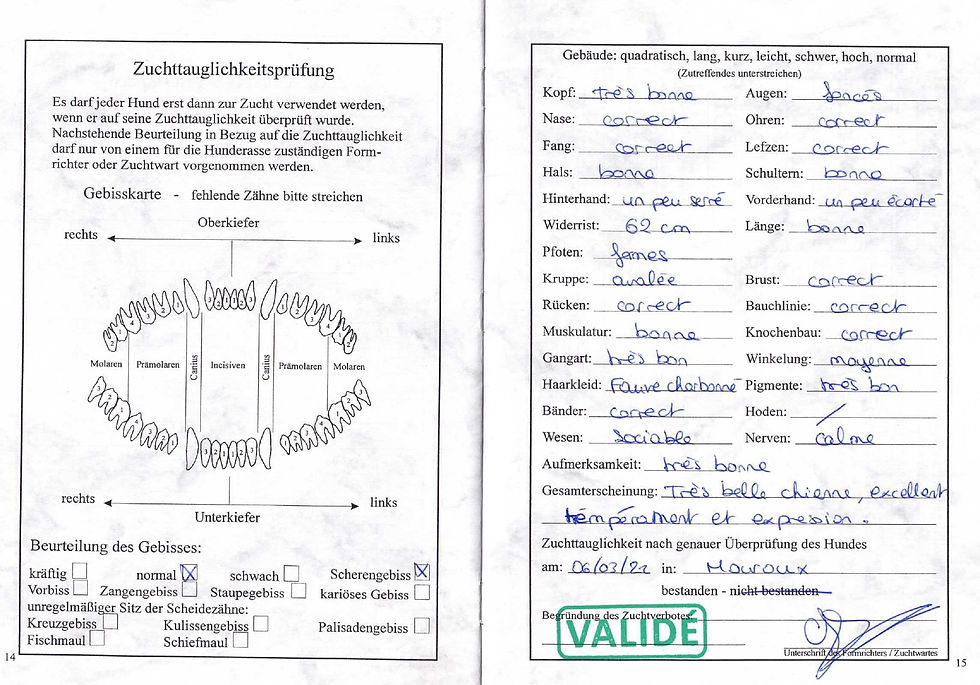 Zuchttauglichkeitsprüfung
Es darf jeder Hund erst dann zur Zucht verwendet werden,
wenn er auf seine Zuchttauglichkeit überprüft wurde.
Nachstehende Beurteilung in Bezug auf die Zuchttauglichkeit
darf nur von einem für die Hunderasse zuständigen Form-
richter oder Zuchtwart vorgenommen werden.
Gebisskarte - fehlende Zähne bitte streichen
Oberkiefer
rechts links
Molaren Prämolaren Canius Incisiven Canius Prämolaren Molaren
rechts links
Unterkiefer
Beurteilung des Gebisses:
kräftig normal schwach Scherengebiss
Vorbiss Zangengebiss Staupegebiss kariöses Gebiss
unregelmäßiger Sitz der Scheidezähne:
Kreuzgebiss Kulissengebiss Palisadengebiss
Fischmaul Schiefmaul
14
Gebäude: quadratisch, lang, kurz, leicht, schwer, hoch, normal
(Zutreffendes unterstreichen)
Kopf: très bonne Augen: foncés
Nase: correct Ohren: correct
Fang: correct Lefzen: correct
Hals: bonne Schultern: bonne
Hinterhand: un peu serré Vorderhand: un peu écarté
Widerrist: 62 cm Länge: bonne
Pfoten:
Kruppe: avalée Brust: correct
Rücken: correct Bauchlinie: correct
Muskulatur: bonne Knochenbau: correct
Gangart: très bon Winkelung: moyenne
Haarkleid: Fauve charbonné Pigmente: très bon
Bänder: correct Hoden: /
Wesen: sociable Nerven: calme
Aufmerksamkeit: très bonne
Gesamterscheinung: Très belle chienne, excellent
tempérament et expression.
Zuchttauglichkeit nach genauer Überprüfung des Hundes
am: 06/03/22 in: Mouroux
bestanden - nicht bestanden
Begründung des Zuchtverbotes:
VALIDÉ
Unterschrift des Formrichters / Zuchtwartes
15